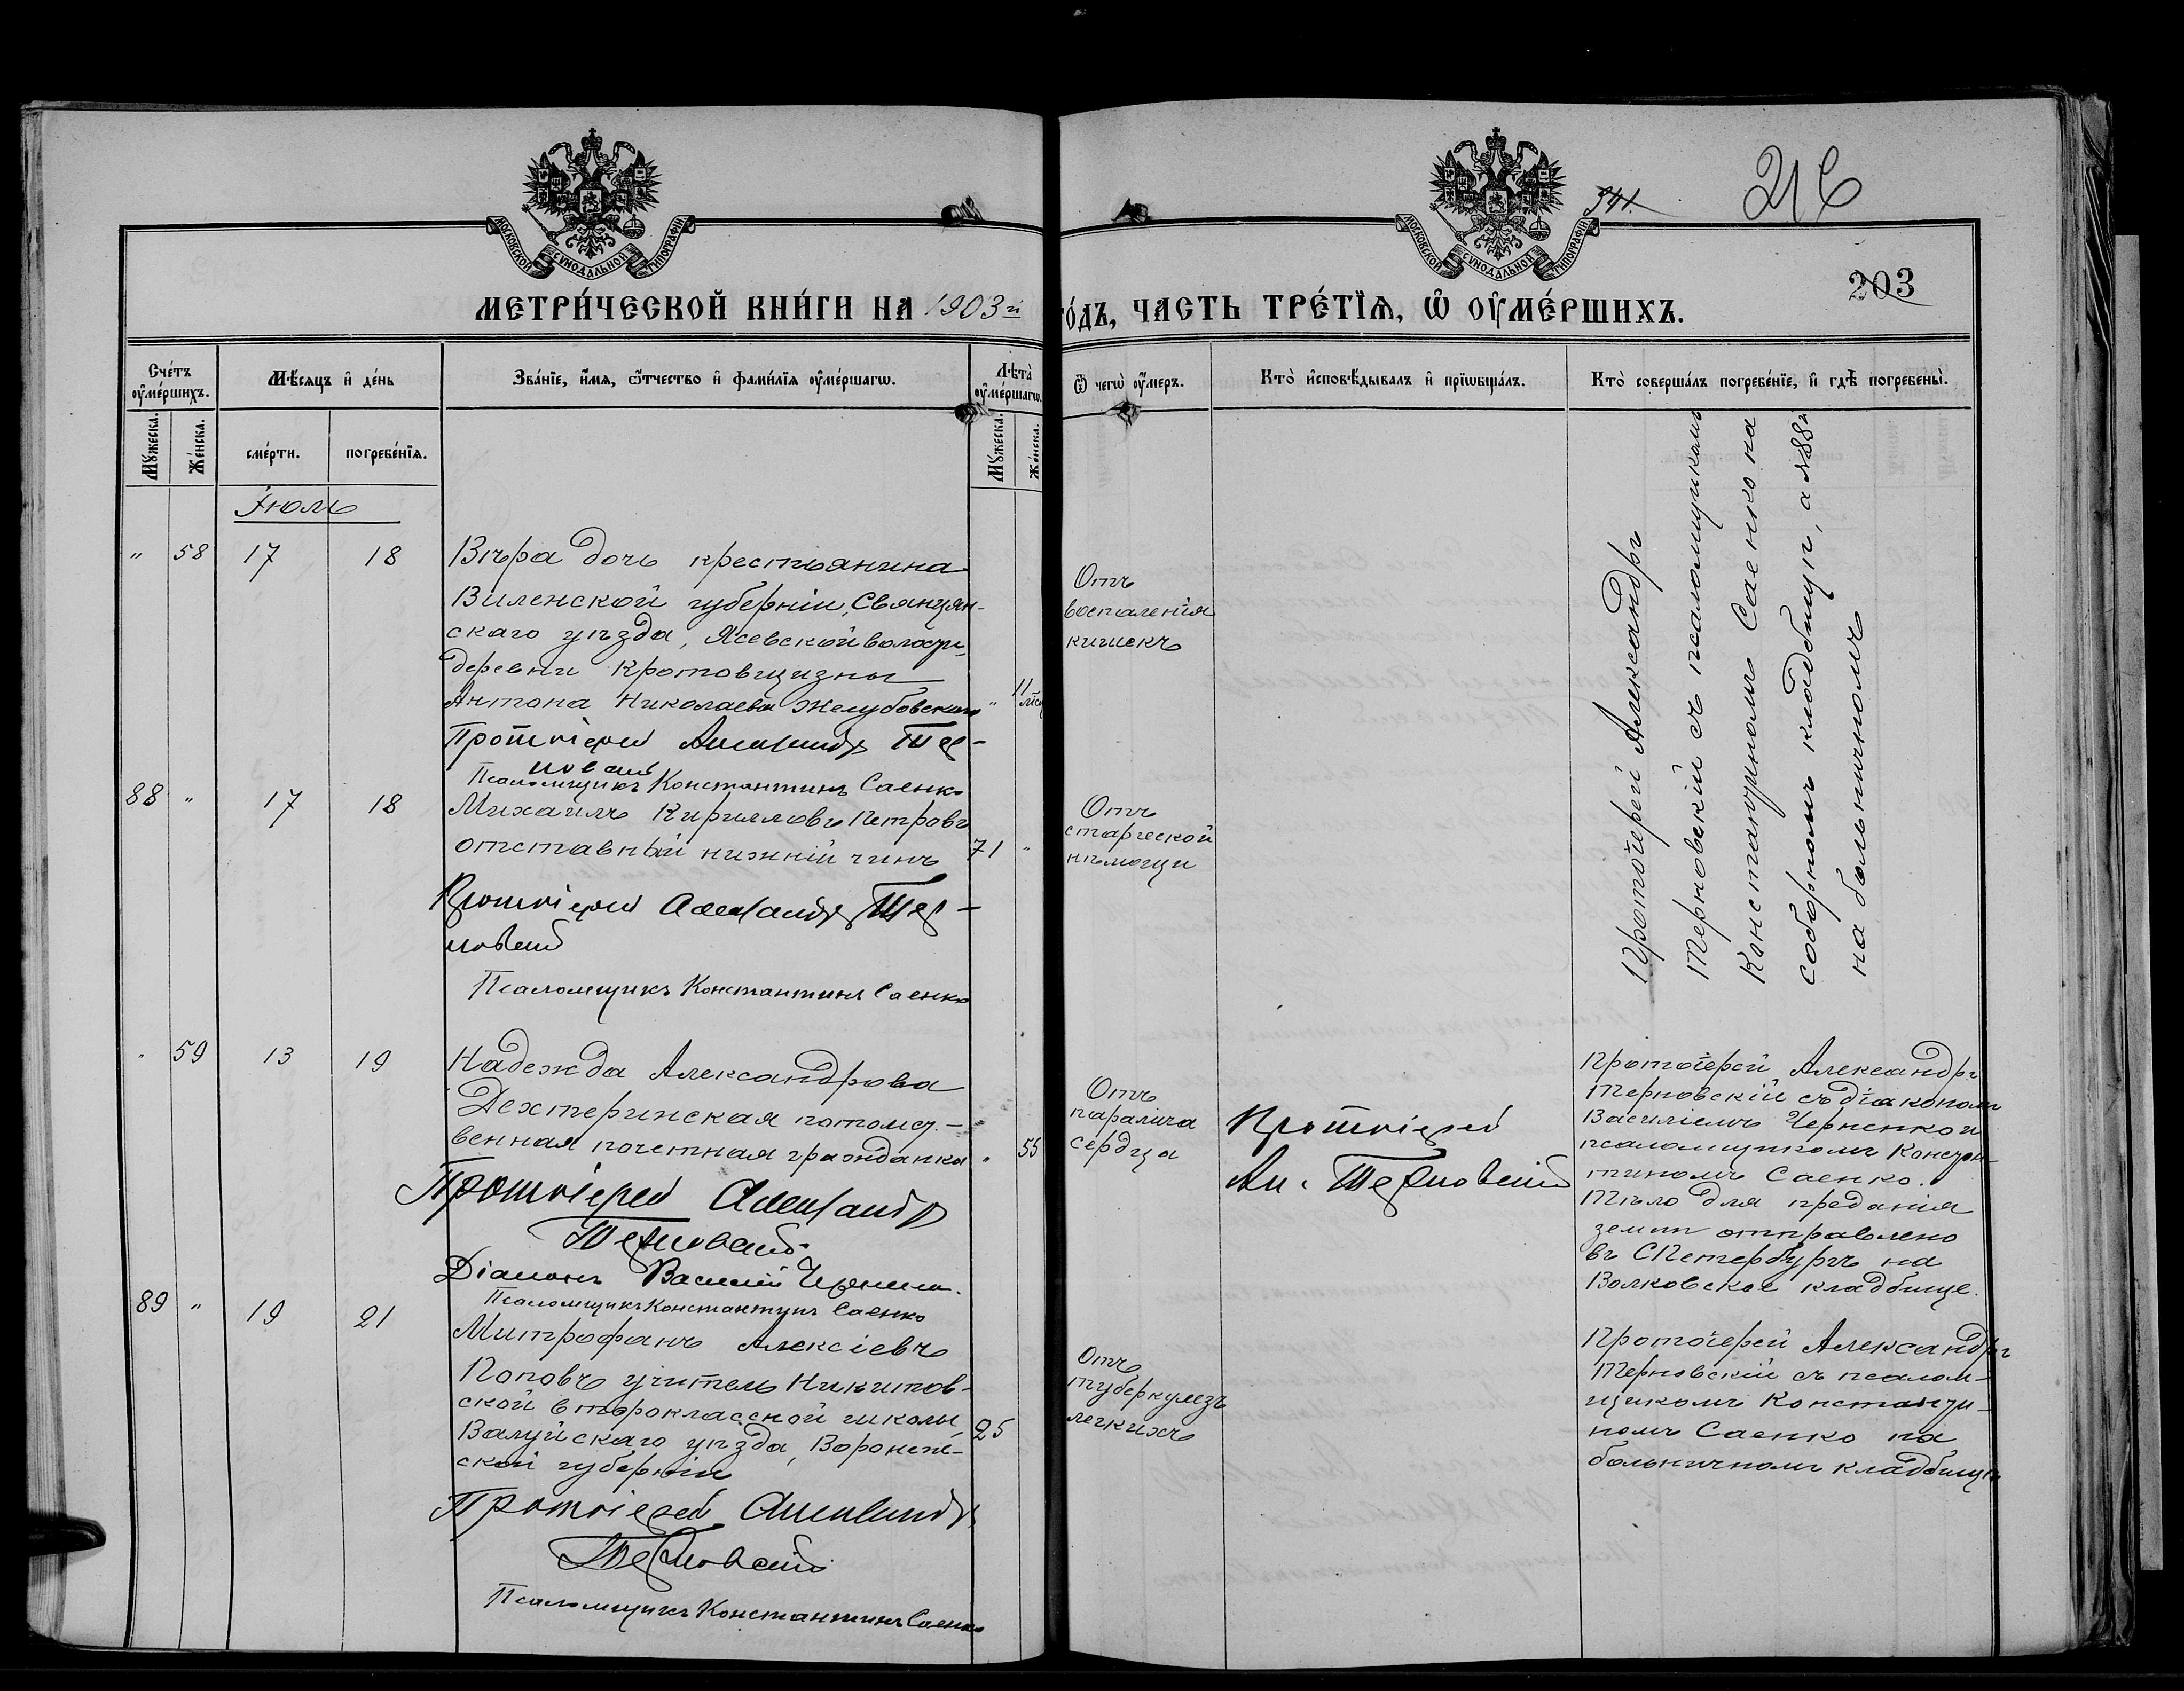 МОСКОВСКОЙ СѴНОДАЛЬНОЙ ТИПОГРАФІИ
МОСКОВСКОЙ СѴНОДАЛЬНОЙ ТИПОГРАФІИ
941.
216
203
МЕТРИ́ЧЕСКОЙ КНИ́ГИ НА 1903й
го́дъ, ЧАСТЬ ТРЕ́ТЇѦ, Ѡ҆ ОУ҆МЕ́РШИХЪ.
Сче́тъ оу҆ме́ршихъ.
Мꙋ́жеска.
Же́нска.
Мѣ́сѧцъ и҆ де́нь
сме́рти.
погребе́нїѧ.
Зва́нїе, и҆́мѧ, ѻ҆́тчество и҆ фами́лїѧ оу҆ме́ршагѡ.
Лѣта̀ оу҆ме́ршагѡ.
Мꙋ́жеска.
Же́нска.
Ѿ чегѡ̀ оу҆́меръ.
Кто̀ и҆сповѣ́дывалъ и҆ прїѡбща́лъ.
Кто̀ соверша́лъ погребе́нїе, и҆ гдѣ̀ погребены̀.
Іюль
" 58 17 18
Вѣра дочь крестьянина
Виленской губерніи, Свянцян-
скаго уѣзда, Ясевской волости,
деревни Кротовщизны
Антона Николаева Желубовскаго " 11 мѣс
Протоіерей Александръ Тер-
новскій
Псаломщикъ Константинъ Саенко
Отъ
воспаленія
кишекъ
Протоіерей Александръ
Терновскій съ псаломщикомъ
Константиномъ Саенко на
соборномъ кладбищѣ, а №88й
на больничномъ
88 " 17 18
Михаилъ Кирилловъ Петровъ
отставный нижній чинъ 71 "
Протоіерей Александръ Тер-
новскій
Псаломщикъ Константинъ Саенко
Отъ
старческой
немощи
" 59 13 19
Надежда Александрова
Дехтеринская потомст-
венная почетная гражданка " 55
Протоіерей Александръ
Терновскій
Діаконъ Василій Черненко.
Псаломщикъ Константинъ Саенко
Отъ
паралича
сердца
Протоіерей
Ал. Терновскій
Протоіерей Александръ
Терновскій съ діакономъ
Василіемъ Черненко и
псаломщикомъ Констан-
тиномъ Саенко.
Тѣло для преданія
земли отправлено
въ СПетербургъ на
Волковское кладбище.
89 " 19 21
Митрофанъ Алексіевъ
Поповъ учитель Никитов-
ской второклассной школы,
Валуйскаго уѣзда, Воронеж- 25
ской губерніи
Протоіерей Александръ
Терновскій
Псаломщикъ Константинъ Саенко
Отъ
туберкулезъ
легкихъ
Протоіерей Александръ
Терновскій съ псалом-
щикомъ Константи-
номъ Саенко на
больничномъ кладбищѣ